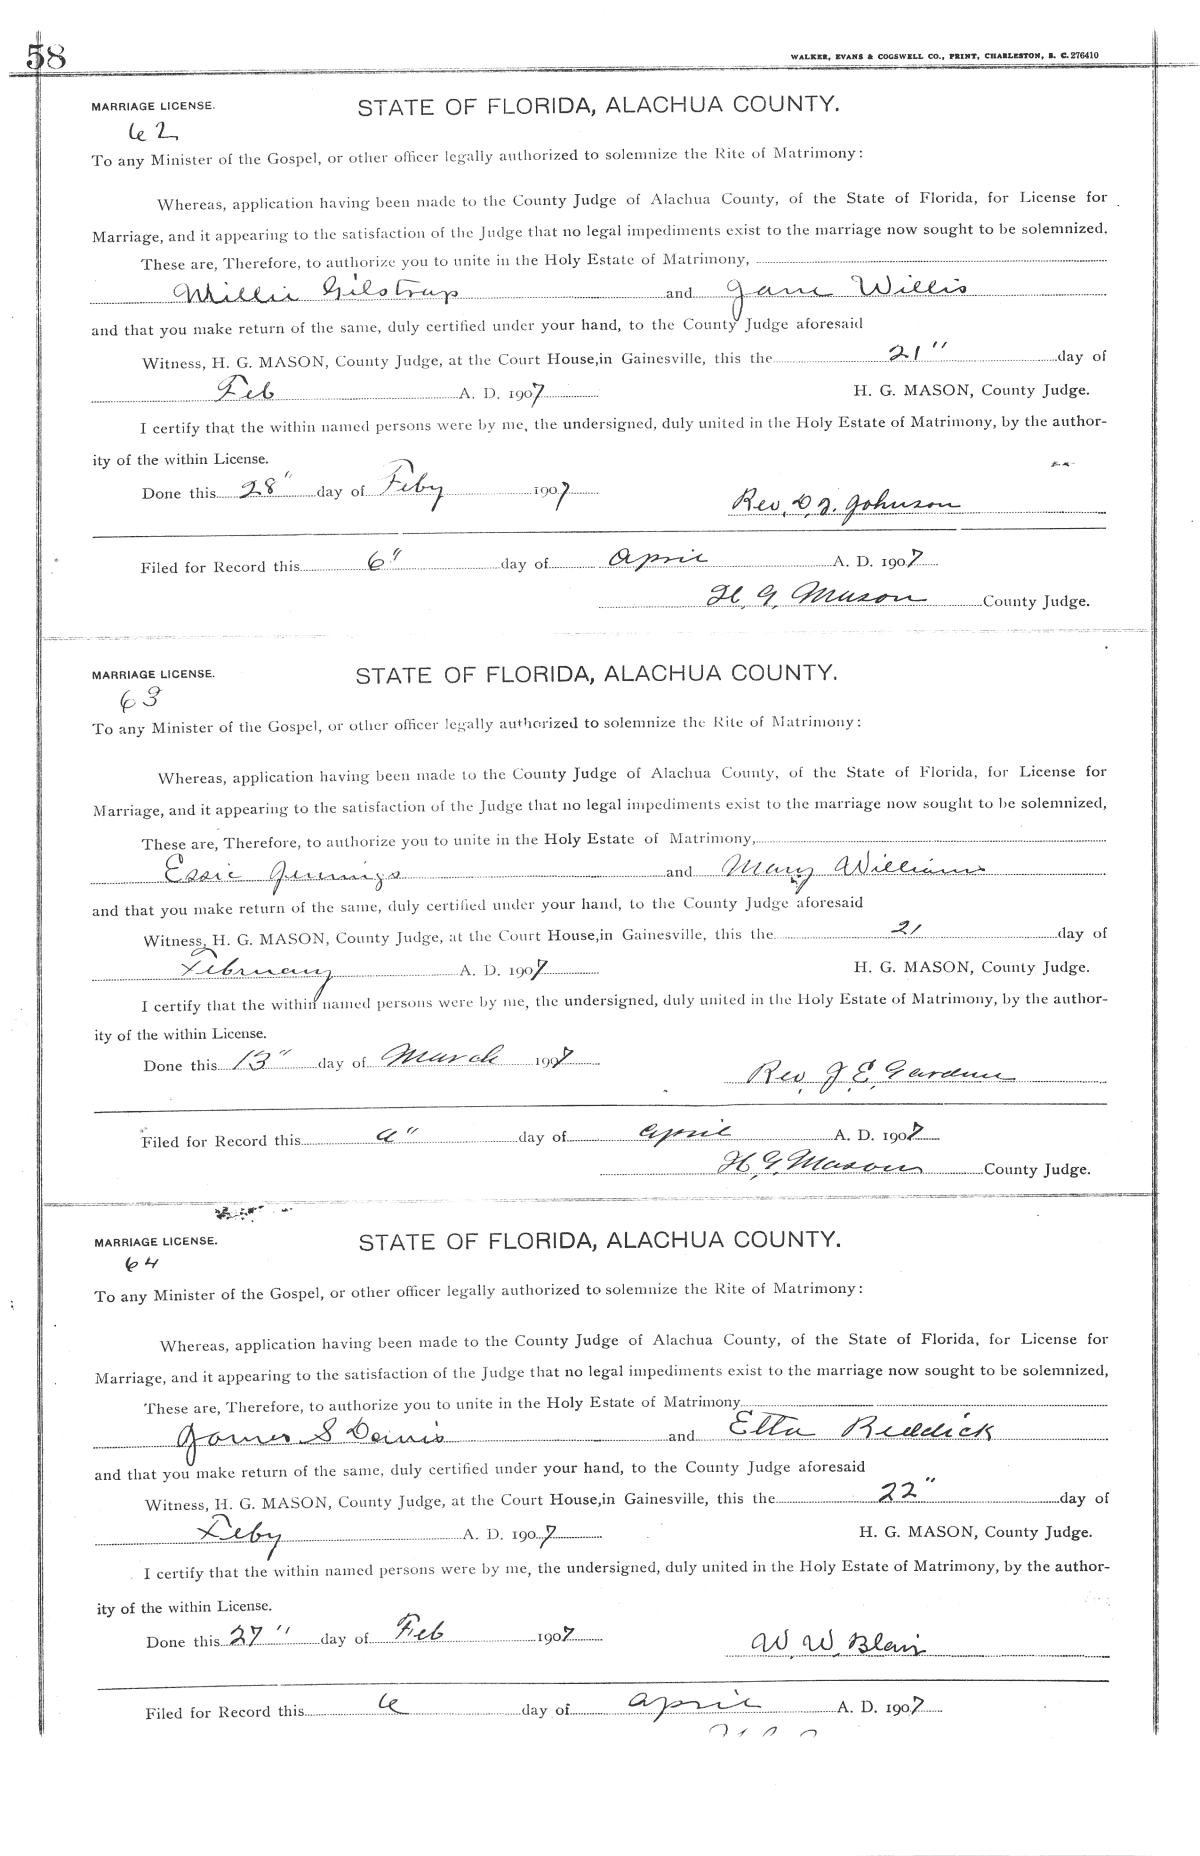 58
WALKER, EVANS & COGSWELL CO., PRINT, CHARLESTON, S. C. 276410
MARRIAGE LICENSE.
STATE OF FLORIDA, ALACHUA COUNTY.
62
To any Minister of the Gospel, or other officer legally authorized to solemnize the Rite of Matrimony:
Whereas, application having been made to the County Judge of Alachua County, of the State of Florida, for License for
Marriage, and it appearing to the satisfaction of the Judge that no legal impediments exist to the marriage now sought to be solemnized.
These are, Therefore, to authorize you to unite in the Holy Estate of Matrimony,
Willie Gilstrap and Jane Willis
and that you make return of the same, duly certified under your hand, to the County Judge aforesaid
Witness, H. G. MASON, County Judge, at the Court House, in Gainesville, this the 21" day of
Feb A. D. 1907 H. G. MASON, County Judge.
I certify that the within named persons were by me, the undersigned, duly united in the Holy Estate of Matrimony, by the author-
ity of the within License.
Done this 28" day of Feby 1907
Rev, D, J. Johnson
Filed for Record this 6" day of April A. D. 1907
H. G. Mason County Judge.
MARRIAGE LICENSE.
STATE OF FLORIDA, ALACHUA COUNTY.
63
To any Minister of the Gospel, or other officer legally authorized to solemnize the Rite of Matrimony:
Whereas, application having been made to the County Judge of Alachua County, of the State of Florida, for License for
Marriage, and it appearing to the satisfaction of the Judge that no legal impediments exist to the marriage now sought to be solemnized,
These are, Therefore, to authorize you to unite in the Holy Estate of Matrimony,
Essie Jennings and Mary Williams
and that you make return of the same, duly certified under your hand, to the County Judge aforesaid
Witness, H. G. MASON, County Judge, at the Court House, in Gainesville, this the 21 day of
February A. D. 1907 H. G. MASON, County Judge.
I certify that the within named persons were by me, the undersigned, duly united in the Holy Estate of Matrimony, by the author-
ity of the within License.
Done this 13" day of March 1907
Rev, J. E. Gardner
Filed for Record this 6" day of April A. D. 1907
H. G. Mason County Judge.
MARRIAGE LICENSE.
STATE OF FLORIDA, ALACHUA COUNTY.
64
To any Minister of the Gospel, or other officer legally authorized to solemnize the Rite of Matrimony:
Whereas, application having been made to the County Judge of Alachua County, of the State of Florida, for License for
Marriage, and it appearing to the satisfaction of the Judge that no legal impediments exist to the marriage now sought to be solemnized,
These are, Therefore, to authorize you to unite in the Holy Estate of Matrimony
James S Davis and Etta Reddick
and that you make return of the same, duly certified under your hand, to the County Judge aforesaid
Witness, H. G. MASON, County Judge, at the Court House, in Gainesville, this the 22" day of
Feby A. D. 1907 H. G. MASON, County Judge.
I certify that the within named persons were by me, the undersigned, duly united in the Holy Estate of Matrimony, by the author-
ity of the within License.
Done this 27" day of Feb 1907
W. W. Blair
Filed for Record this 6 day of April A. D. 1907